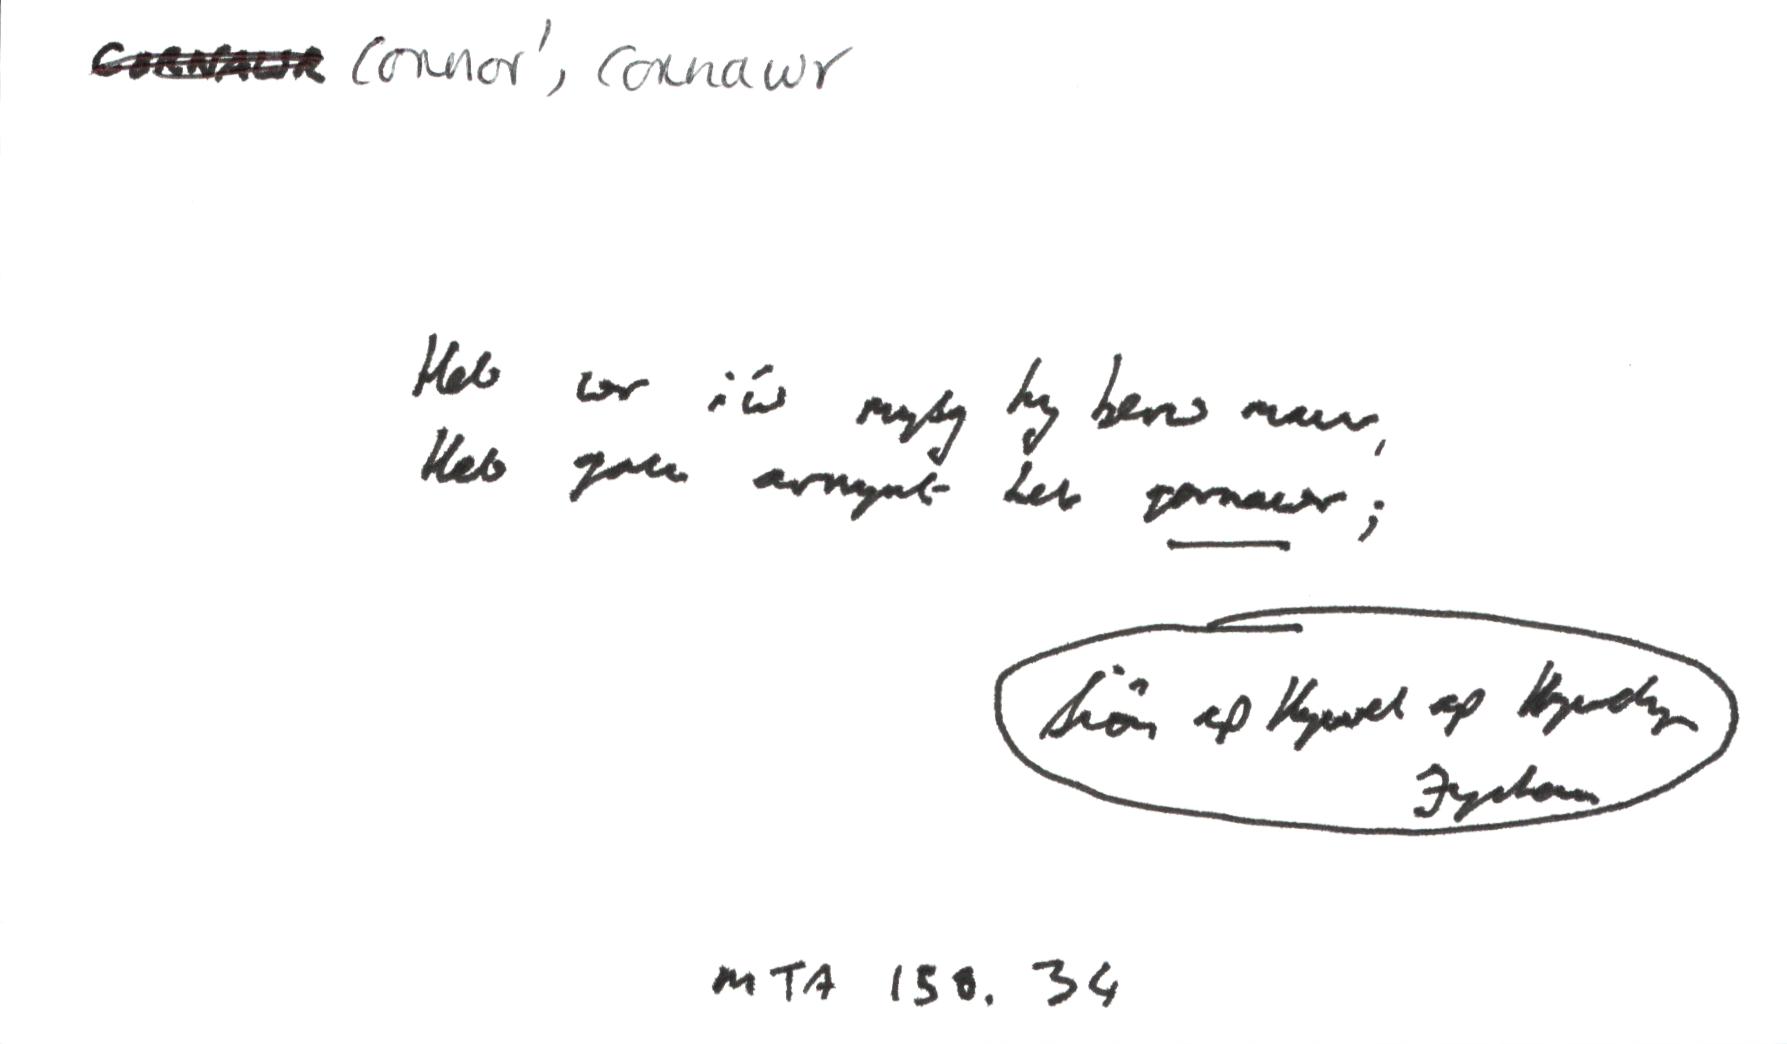 CORNAWR cornor¹, cornawr
Heb wr i'w mysg hy berw mawr,
Heb gall arnynt heb gornawr;
Siôn ap Hywel ap Llywelyn
Fychan
MTA 150. 34